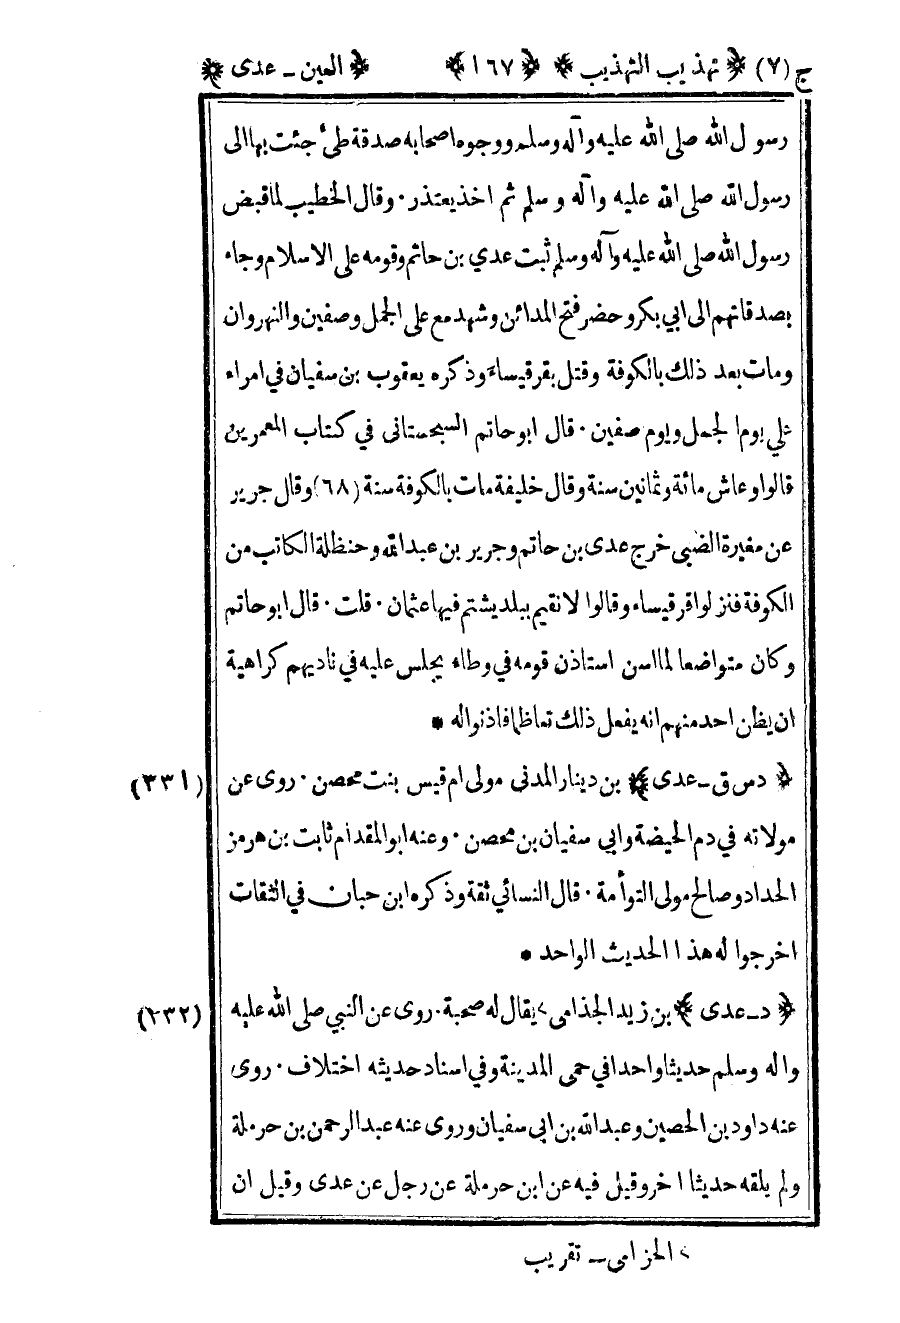 ج (٧) ﴿ تهذيب التهذيب ﴾ ﴿ ١٦٧ ﴾ ﴿ العين - عدى ﴾
رسول الله صلى الله عليه وآله وسلم ووجوه اصحابه صدقة طئ جئت بها الى
رسول الله صلى الله عليه وآله وسلم ثم اخذ يعتذر · وقال الخطيب لما قبض
رسول الله صلى الله عليه وآله وسلم ثبت عدي بن حاتم وقومه على الاسلام وجاء
بصدقاتهم الى ابي بكر وحضر فتح المدائن وشهد مع على الجمل وصفين والنهروان
ومات بعد ذلك بالكوفة وقتل بقرقيساء وذكره يعقوب بن سفيان في امراء
على يوم الجمل ويوم صفين · قال ابو حاتم السجستانى في كتاب المعمرين
قالوا وعاش مائة وثمانين سنة وقال خليفة مات بالكوفة سنة (٦٨) وقال جرير
عن مغيرة الضبى خرج عدى بن حاتم وجرير بن عبد الله وحنظلة الكاتب من
الكوفة فنزلوا قرقيساء وقالوا لا نقيم ببلد يشتم فيها عثمان · قلت · قال ابو حاتم
وكان متواضعا لما اسن استاذن قومه في وطاء يجلس عليه في ناديهم كراهية
ان يظن احد منهم انه يفعل ذلك تعاظما فاذنوا له *
﴿ دس ق - عدى ﴾ بن دينار المدنى مولى ام قيس بنت محصن · روى عن (٣٣١)
مولاته في دم الحيضة وابي سفيان بن محصن · وعنه ابو المقدام ثابت بن هرمز
الحداد وصالح مولى التوأمة · قال النسائي ثقة وذكره ابن حبان في الثقات
اخرجوا له هذا الحديث الواحد *
﴿ د - عدى ﴾ بن زيد الجذامى > يقال له صحبة · روى عن النبي صلى الله عليه (٣٣٢)
واله وسلم حديثا واحدا في حمى المدينة وفي اسناد حديثه اختلاف · روى
عنه داود بن الحصين وعبد الله بن ابى سفيان وروى عنه عبد الرحمن بن حرملة
ولم يلقه حديثا اخر وقيل فيه عن ابن حرملة عن رجل عن عدى وقيل ان
> الحزامى - تقريب